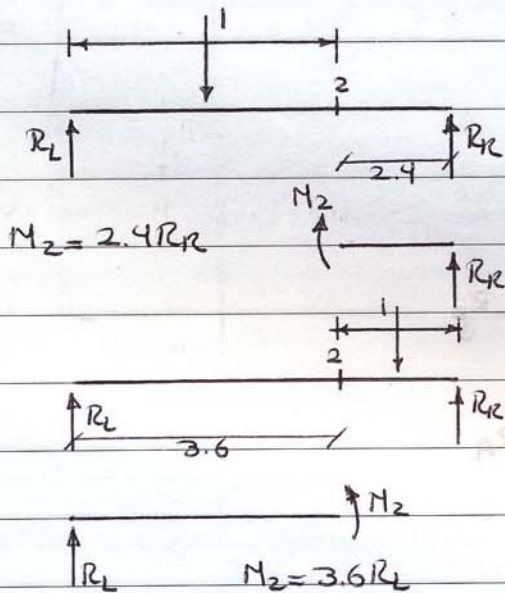 1
2
R_L
R_R
2.4
M_2
M_2 = 2.4 R_R
R_R
1
2
R_L
R_R
3.6
M_2
R_L
M_2 = 3.6 R_L